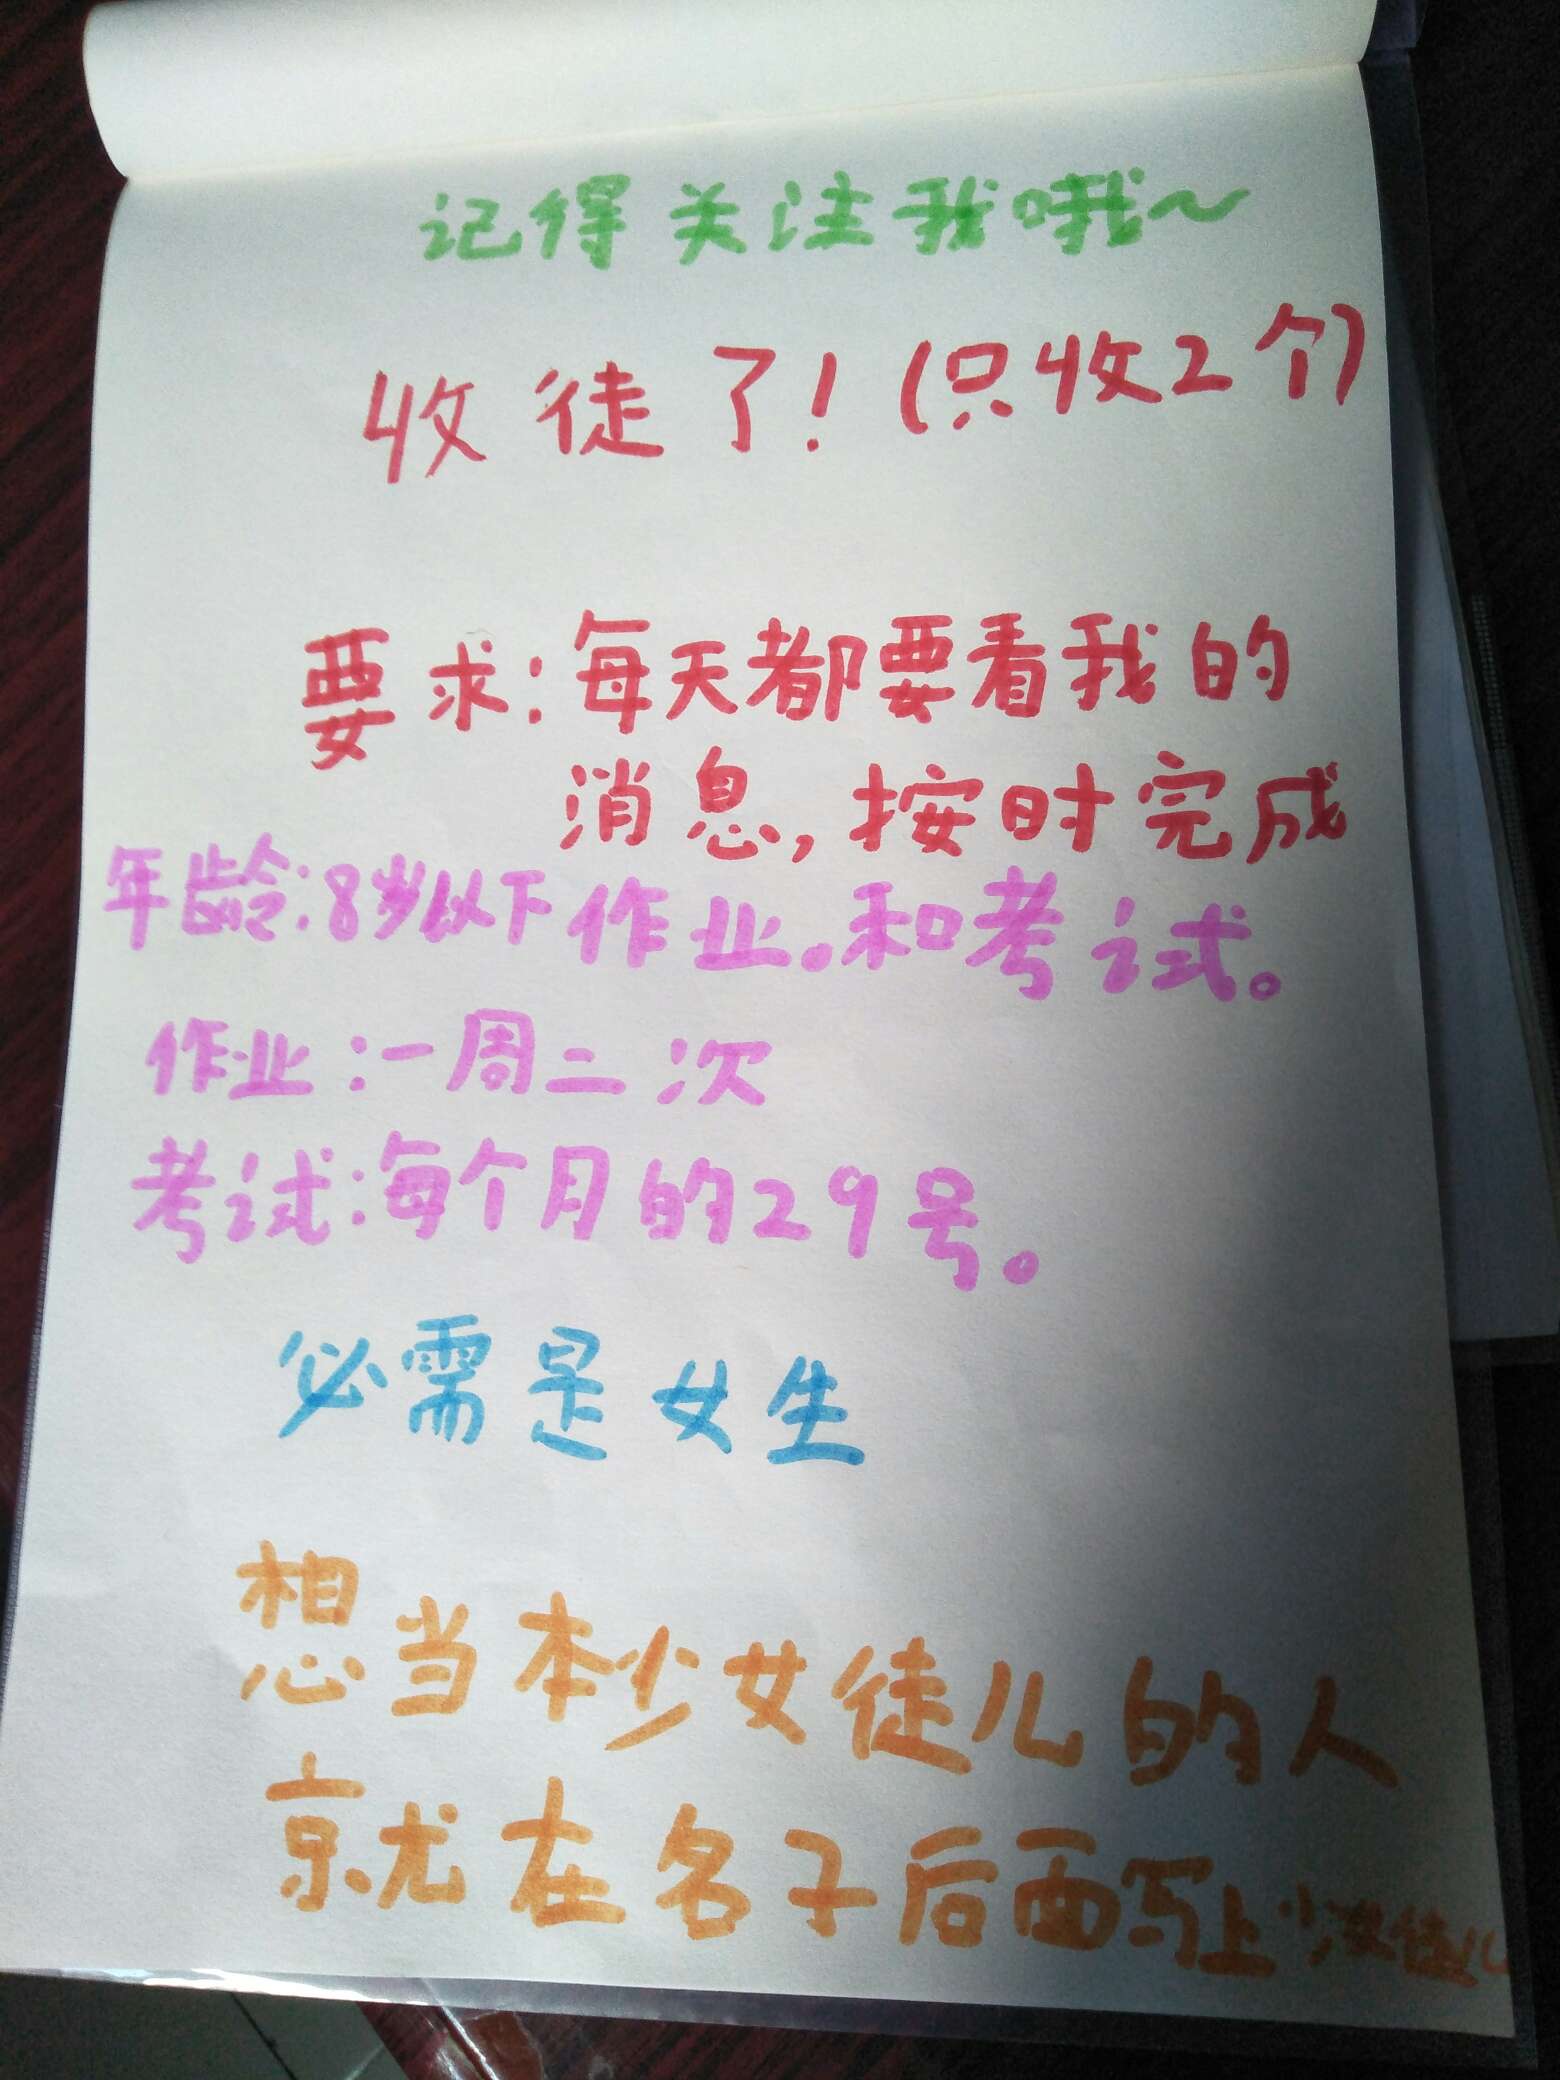 记得关注我哦～
收徒了！(只收2个)
要求：每天都要看我的
消息，按时完成
年龄：8岁以下 作业。和考试。
作业：一周二次
考试：每个月的29号。
必需是女生
想当本少女徒儿的人
就在名子后面写上少女徒儿